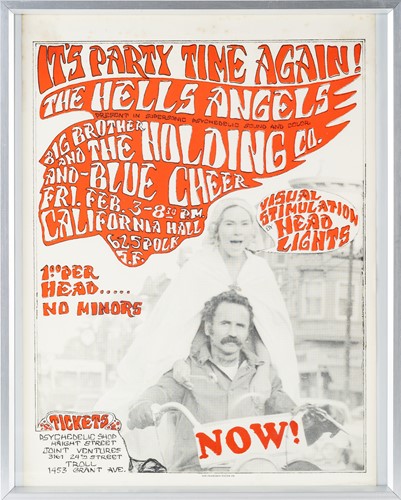 IT'S PARTY TIME AGAIN!
THE HELLS ANGELS
PRESENT IN SUPERSONIC PSYCHEDELIC SOUND AND COLOR
BIG BROTHER
AND THE HOLDING CO.
AND-BLUE CHEER
FRI. FEB. 3-8:30 P.M.
CALIFORNIA HALL
625 POLK
S.F.
VISUAL
STIMULATION
BY HEAD
LIGHTS
1.00 PER
HEAD.....
NO MINORS
NOW!
TICKETS
PSYCHEDELIC SHOP
HAIGHT STREET
JOINT VENTURES
3161 24TH STREET
TROLL
1453 GRANT AVE.